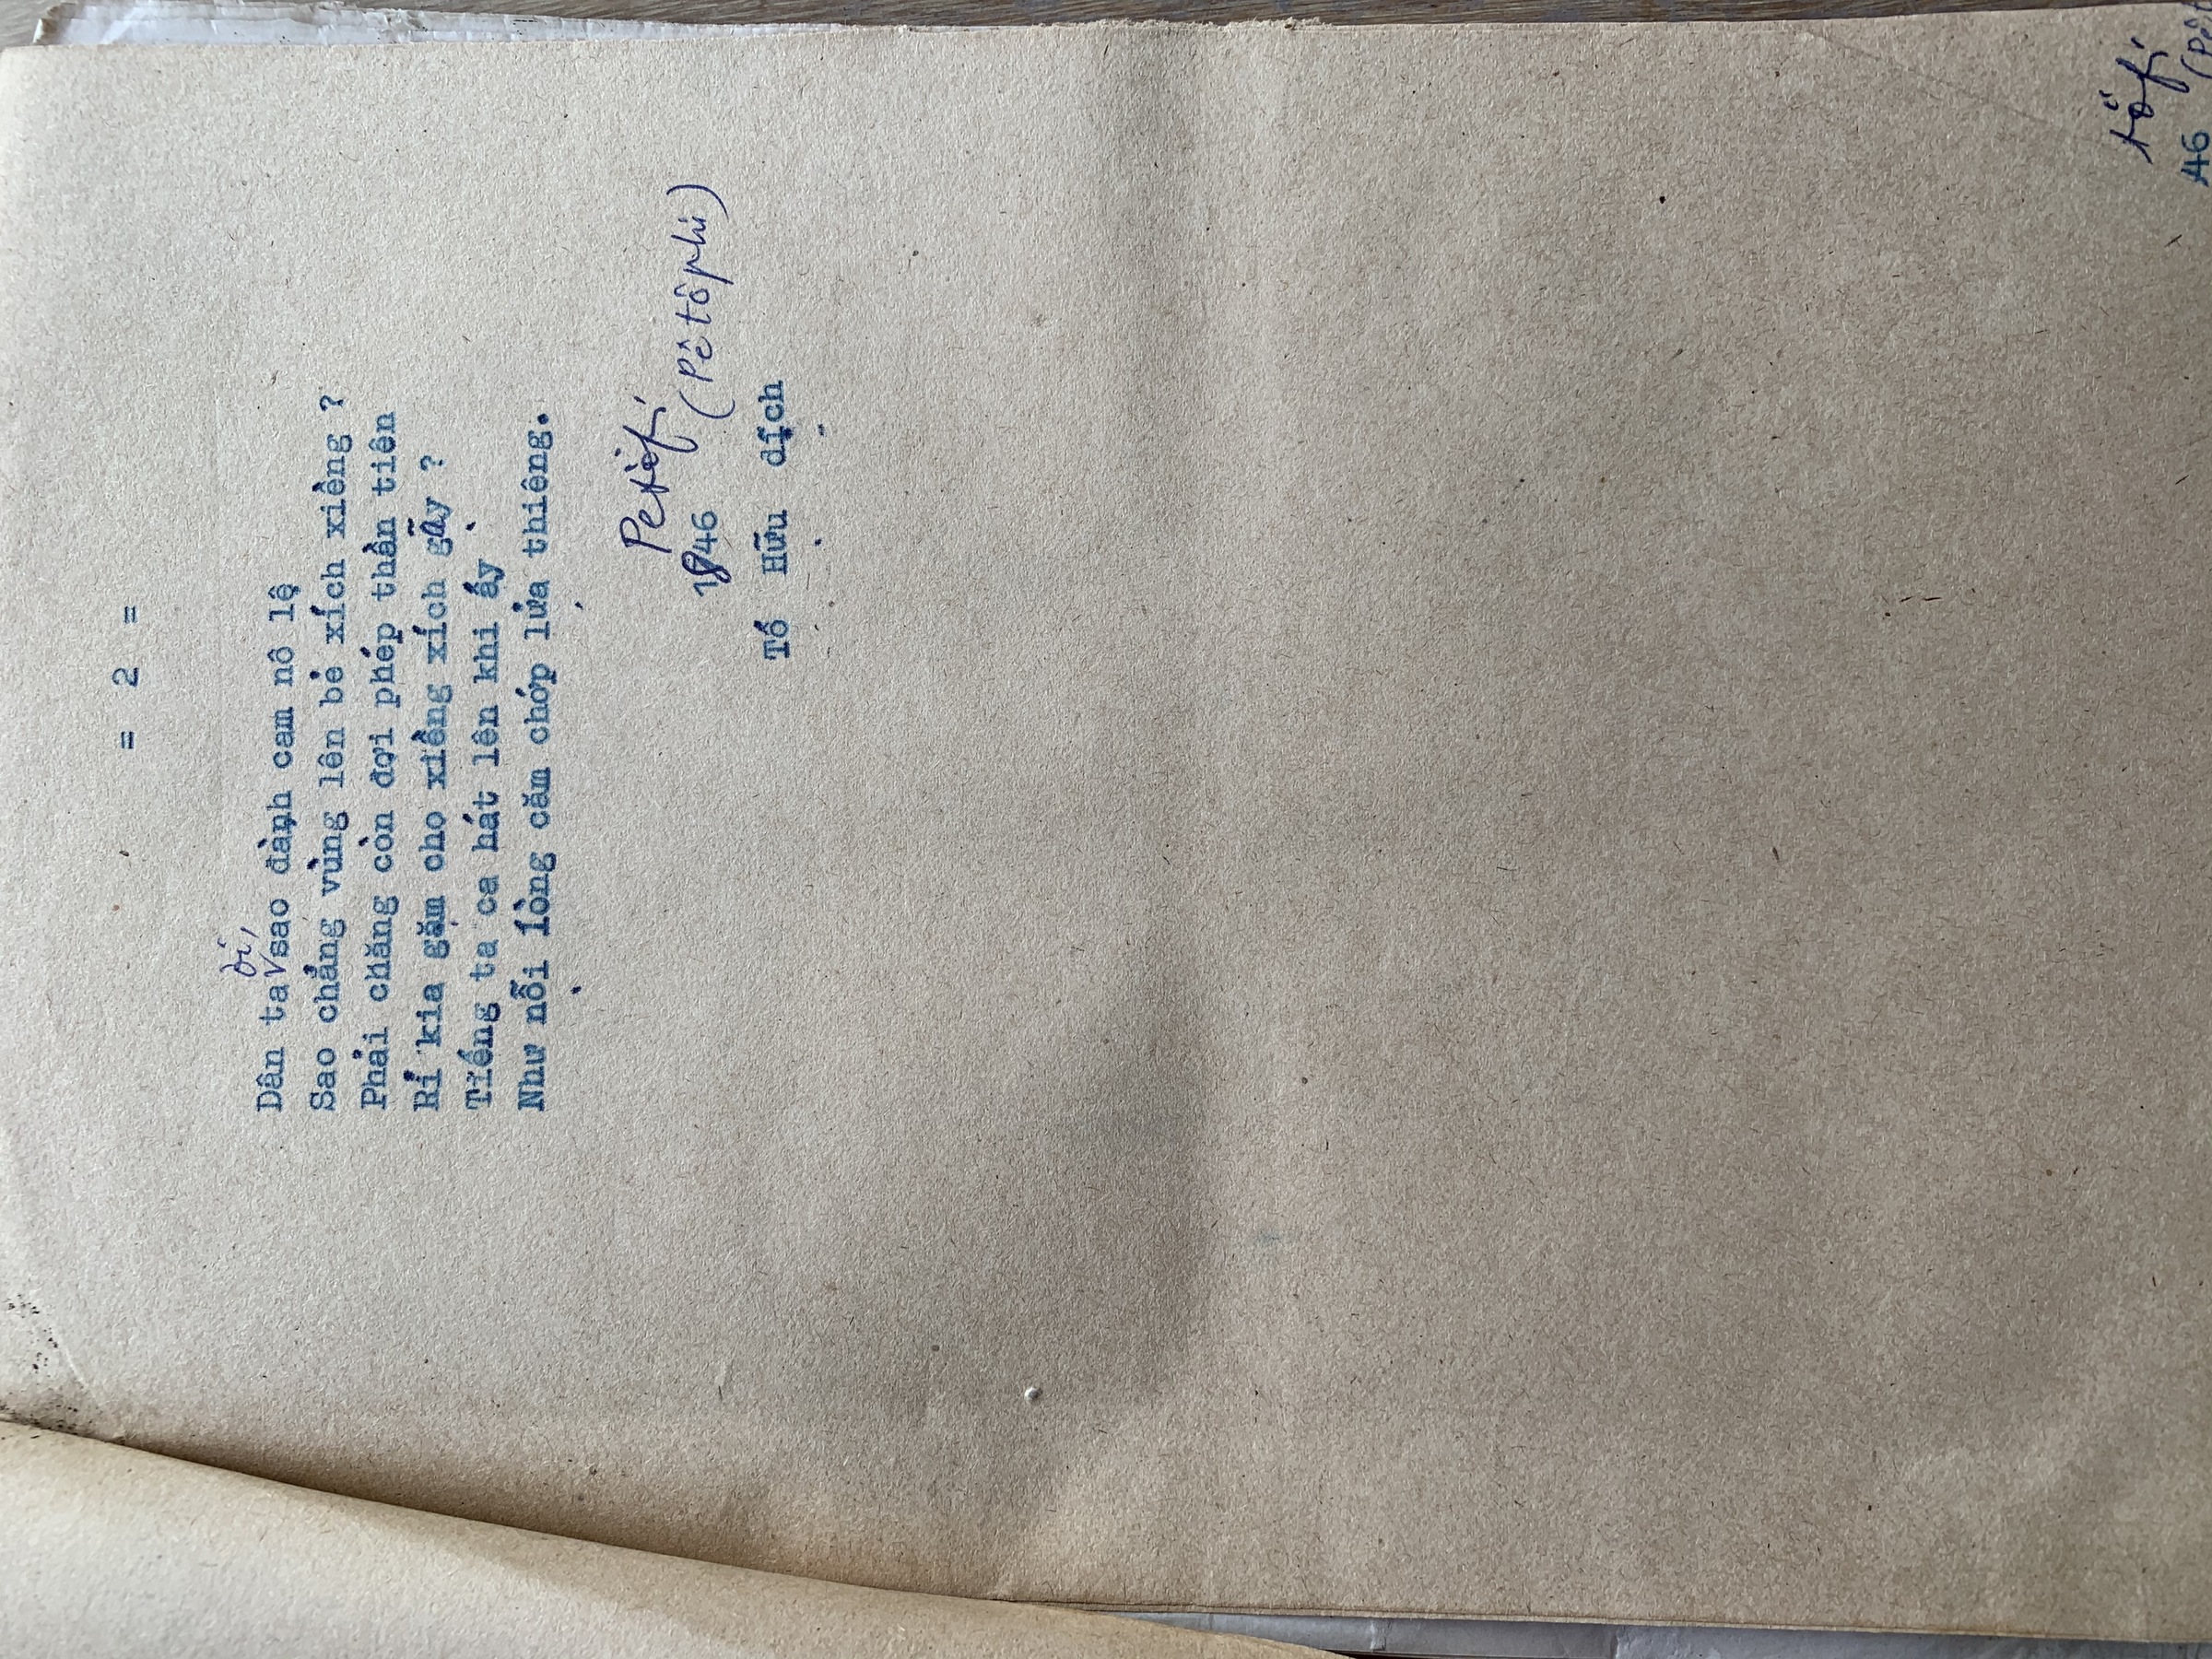 = 2 =
Dân ta ơi, sao đành cam nô lệ
Sao chẳng vùng lên bẻ xích xiềng ?
Phải chăng còn đợi phép thần tiên
Rỉ kia gặm cho xiềng xích gãy ?
Tiếng ta ca hát lên khi ấy
Như nỗi lòng căm chớp lửa thiêng.
Petőfi
1846 (Pêtôphi)
Tố Hữu dịch
tőfi
46 (Pêt